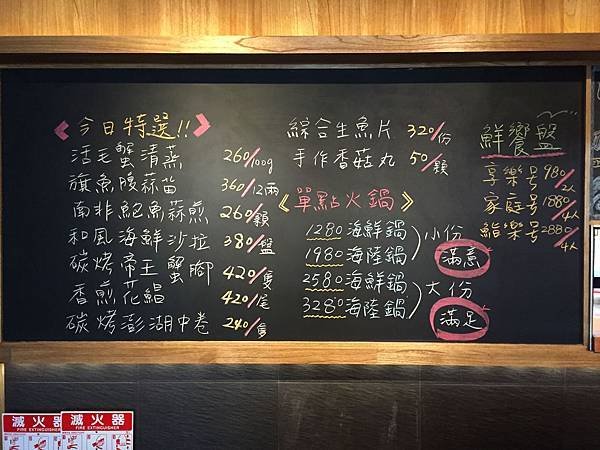 今日特選!!
活毛蟹清蒸 260/100g
旗魚腹蒜苗 360/12兩
南非鮑魚蒜煎 260/顆
和風海鮮沙拉 380/盤
碳烤帝王蟹腳 420/隻
香煎花鯧 420/尾
碳烤澎湖中卷 240/隻
綜合生魚片 320/份
手作香菇丸 50/顆
《單點火鍋》
1280海鮮鍋
1980海陸鍋
小份
滿意
2580海鮮鍋
3280海陸鍋
大份
滿足
鮮饗盤
享樂号 980/2人
家庭号 1880/4人
鮨樂号 2880/4人
滅火器
FIRE EXTINGUISHER
滅火器
FIRE EXTINGUISHER